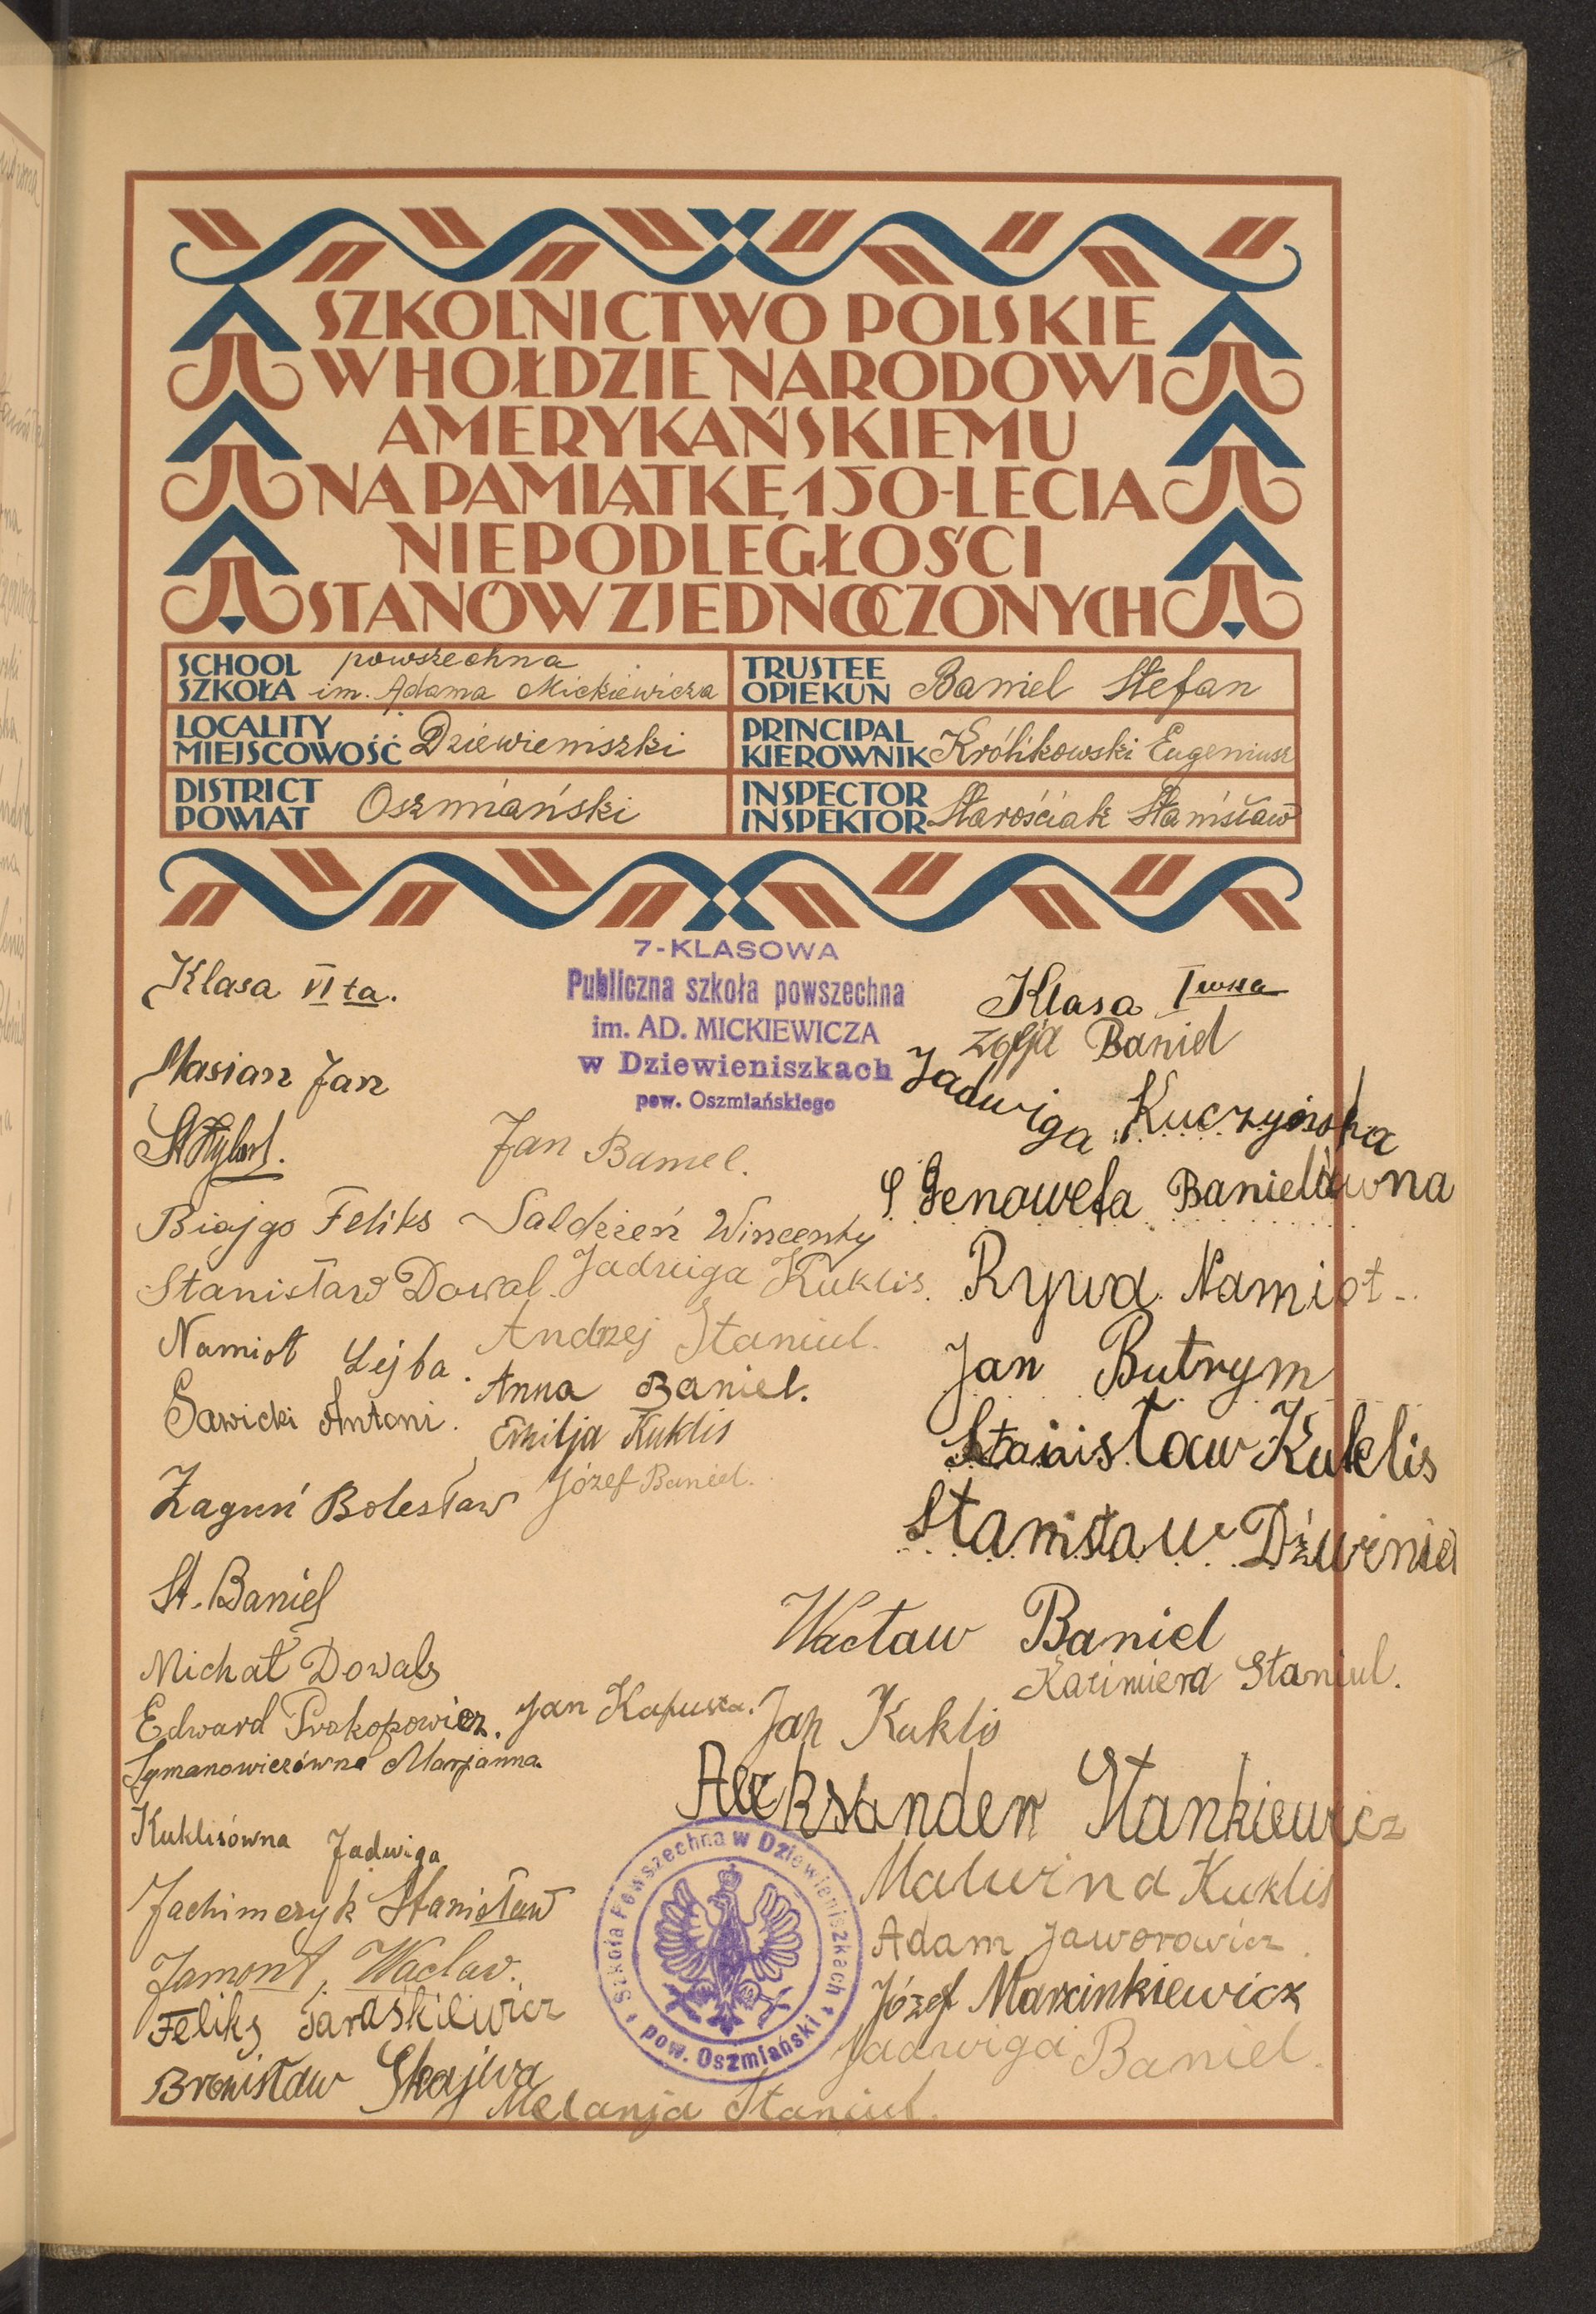 SZKOLNICTWO POLSKIE
W HOŁDZIE NARODOWI
AMERYKAŃSKIEMU
NA PAMIĄTKĘ 150-LECIA
NIEPODLEGŁOŚCI
STANÓW ZJEDNOCZONYCH
SCHOOL
SZKOŁA
powszechna
im. Adama Mickiewicza
TRUSTEE
OPIEKUN
Baniel Stefan
LOCALITY
MIEJSCOWOŚĆ
Dziewieniszki
PRINCIPAL
KIEROWNIK
Królikowski Eugeniusz
DISTRICT
POWIAT
Oszmiański
INSPECTOR
INSPEKTOR
Starościak Stanisław
7-KLASOWA
Publiczna szkoła powszechna
im. AD. MICKIEWICZA
w Dziewieniszkach
pow. Oszmiańskiego
Klasa VI ta.
Masian Jan
Biajgo Feliks
Stanisław Dowal.
Namiot Lejba.
Sawicki Antoni.
Żaguń Bolesław
St. Baniel
Michał Dowal
Edward Prokopowicz.
Symanowiczówna Marjanna.
Kuklisówna Jadwiga
Jachimczyk Stanisław
Jamont, Wacław.
Feliks Taraśkiewicz
Bronisław Skajwa
Jan Baniel.
Saldzień Wincenty
Jadwiga Kuklis.
Andrzej Staniul.
Anna Baniel.
Emilja Kuklis
Józef Baniel.
Jan Kapusta.
Melanja Staniul.
Klasa I wsza
Zofja Baniel
Jadwiga Kuczyńska
Genowefa Banielówna
Rywa Namiot
Jan Butrym
Stanisław Kuklis
Stanisław Dźwinel
Wacław Baniel
Kazimiera Staniul.
Jan Kuklis
Aleksander Stankiewicz
Malwina Kuklis
Adam Jaworowicz.
Józef Marcinkiewicz
Jadwiga Baniel.
Szkoła Powszechna w Dziewieniszkach
pow. Oszmiański